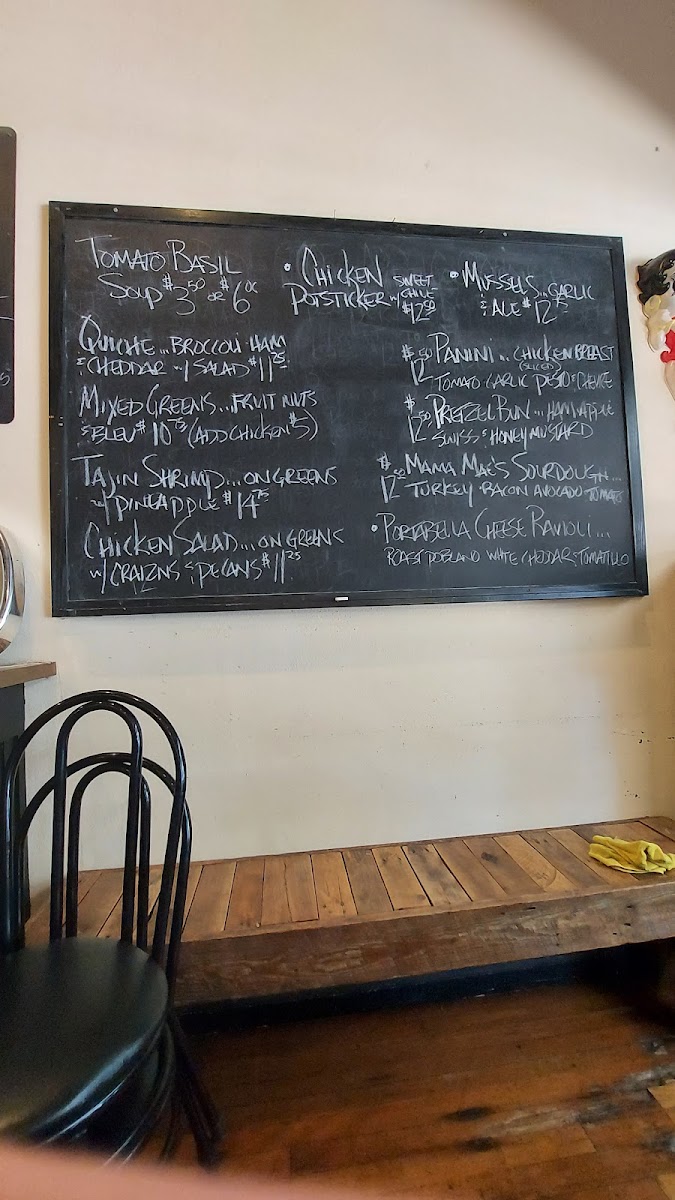 TOMATO BASIL
SOUP $3.50 OR $6.00
QUICHE...BROCCOLI HAM
& CHEDDAR w/ SALAD $11.25
MIXED GREENS...FRUIT NUTS
& BLEU $10.75 (ADD CHICKEN $5)
TAJIN SHRIMP...ON GREENS
w/ PINEAPPLE $14.75
CHICKEN SALAD...ON GREENS
w/ CRAIZNS & PECANS $11.25
• CHICKEN SWEET
POTSTICKER w/ CHILE
$12.50
• MUSSELS...GARLIC
& ALE $12.75
$12.50 PANINI...CHICKEN BREAST
(SLICED)
TOMATO GARLIC PESTO & CHEVRE
$12.50 PRETZEL BUN...HAM APPLE
SWISS & HONEY MUSTARD
$12.50 MAMA MAE'S SOURDOUGH...
TURKEY BACON AVOCADO TOMATO
• PORTABELLA CHEESE RAVIOLI...
ROAST POBLANO WHITE CHEDDAR TOMATILLO